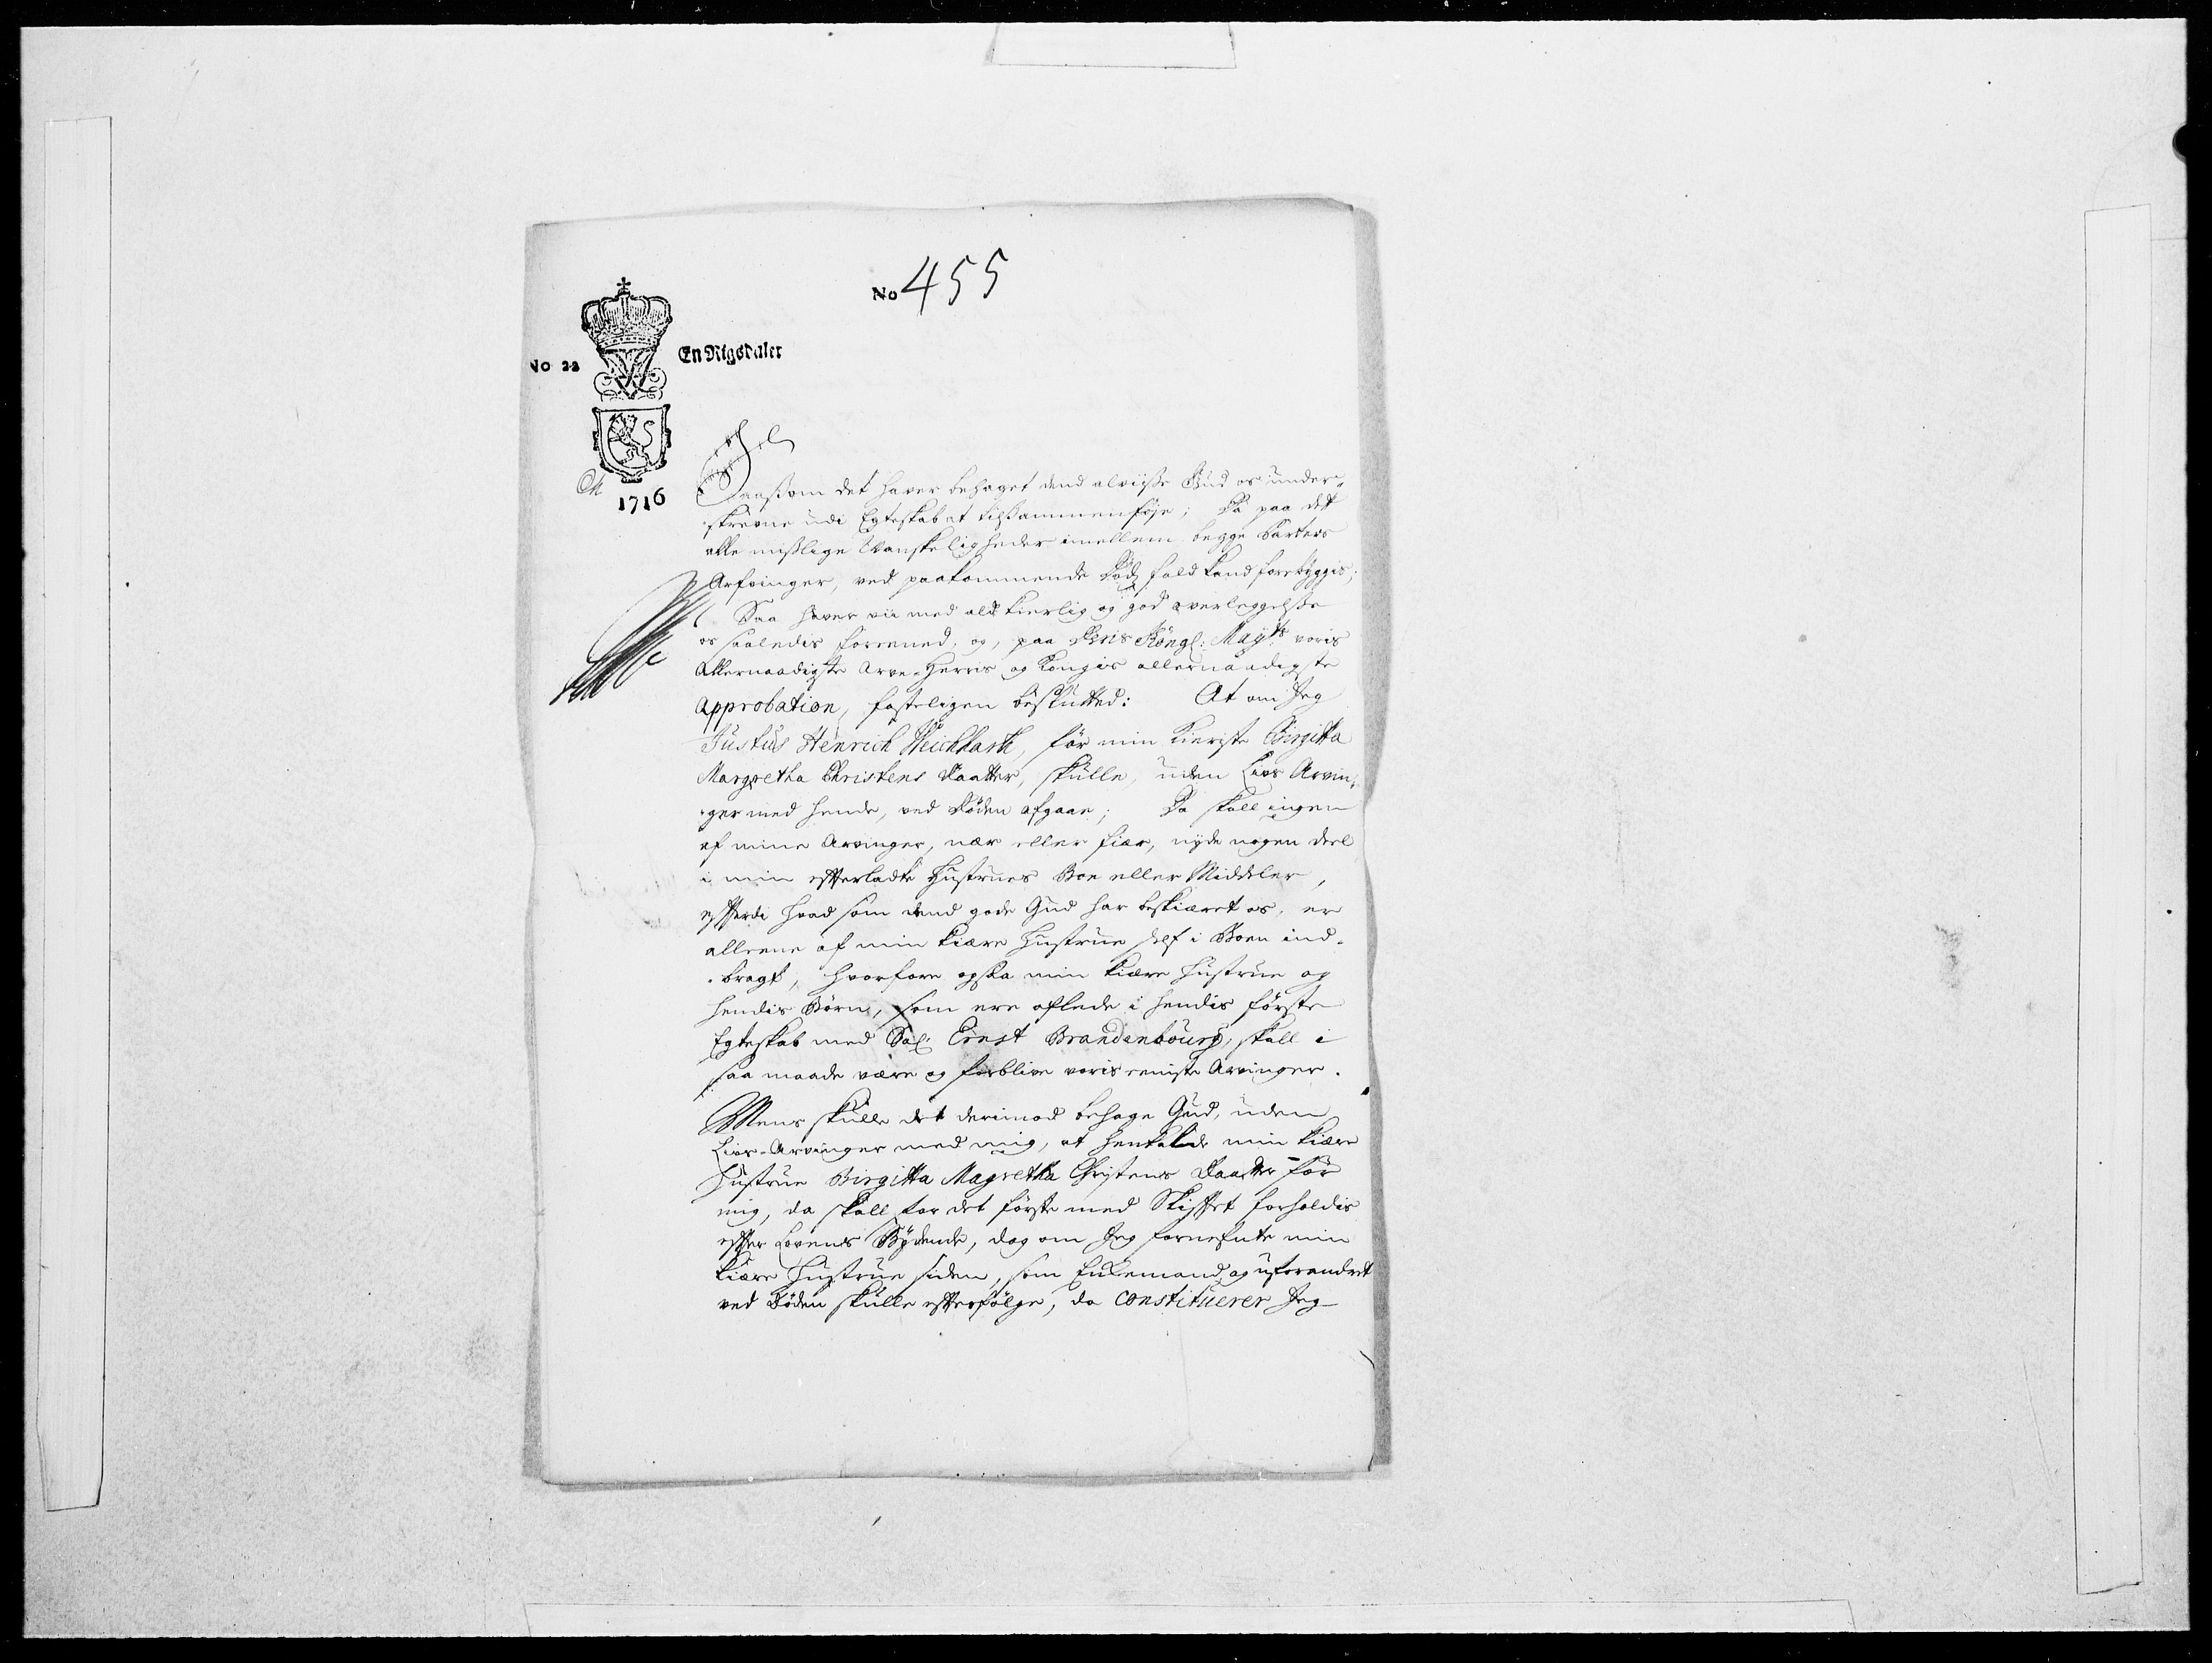 No 455
No 22
En Rigsdaler
1716
Saasom det haver behaget dend alviise Gud os under¬
skrevne udi Egteskab at tilsammenføje; Da paa det
alle mislige Vanskeligheder imellem begge Parters
Arfvinger, ved paakommende Døds fald kand forebyggis;
Saa haver vii med ald kierlig og god overleggelse
os saaledes foreened, og, paa Deris Köngl: Mayts voris
Allernaadigste Arve-Herris og Kongis allernaadigste
approbation, fasteligen beslutted: At om Jeg
Justus Henrich, før min Kieriste Birgitta
Margretha Christens Daatter, skulle, uden Livs Arvin¬
ger med hende, ved Døden afgaae; Da skall ingen
af mine Arvinger, nær eller fiær, nyde nogen deel
i min efterladte Hustrues Boe eller Middeler,
efterdi hvad som dend gode Gud har beskiæret os, er
alleene af min kiære Hustrue self i Boen ind¬
bragt, hvorfore ogsaa min kiære Hustrue og
hendis Børn, som ere aflede i hendis første
Egteskab med Sal: Ernst Brandenbourg, skall i
saa maade være og forblive voris eeniste Arvinger.
Mens skulle det derimod behage Gud, uden
Livs-Arvinger med mig, at henkalde min kiære
Hustrue Birgitta Magretha Christens Daatter før
mig, da skall for det første med Skiftet forholdis
efter Lovens Bydende, dog om Jeg fornefnte min
kiære Hustrue siden, som Enkemand og uforandret
ved Døden skulle efterfølge, da constituerer Jeg